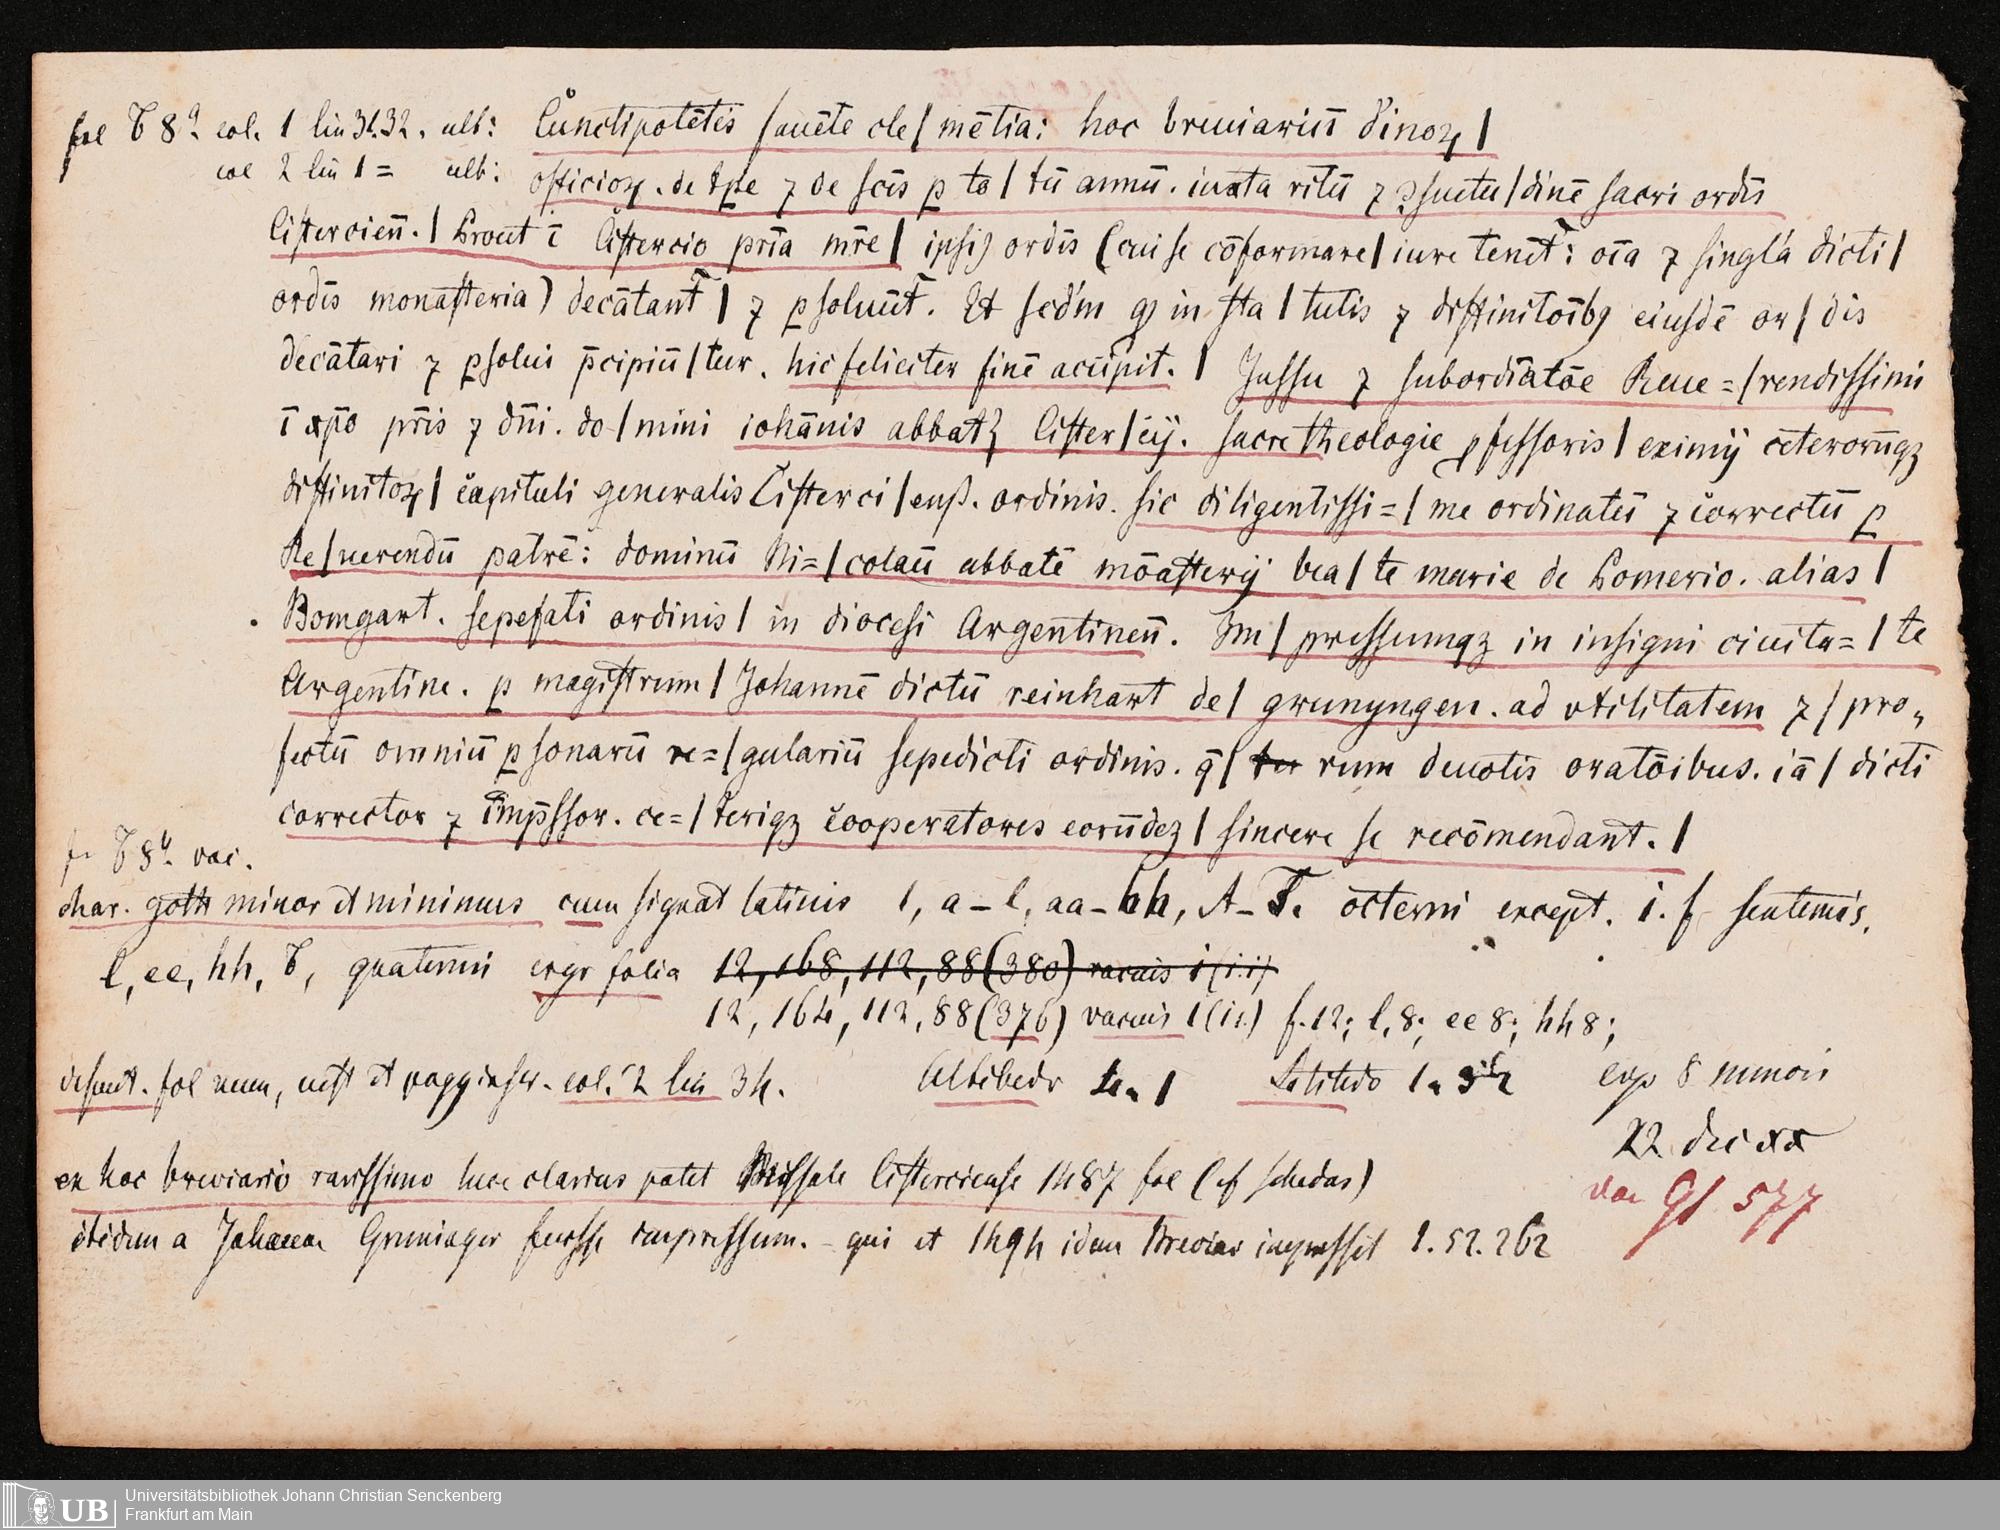 fol T 8ª col. 1 lin 31.32. alb: Cunctipotētis fauēte cle | mētia: hoc breuiariū diuinoꝝ |
col 2 lin 1 = alb: officioꝝ. de tꝑe ⁊ de scīs ꝑ to | tū annū. iuxta ritū ⁊ ꝯsuetu | dinē sacri ordīs
Cisterciēn. | Prout ī Cistercio prīa mr̄e | ipsiꝰ ordīs (cui se cōformare | iure tenēt: oīa ⁊ singl'a dicti |
ordīs monasteria) decātant | ⁊ ꝑsoluūt. Et scdm ꝙ in sta | tutis ⁊ diffinitoībꝰ eiusdē or | dīs
decātari ⁊ ꝑsolui p̄cipiū | tur. hic feliciter finē accipit. | Jussu ⁊ subordīatōe Reue = | rendissimi
ī xp̄o pr̄is ⁊ dn̄i. do | mini iohānis abbatꝫ Cister | cij. sacre theologie ꝓfessoris | eximij ceterorūqꝫ
diffinitoꝝ | capituli generalis Cisterci | enß. ordinis. sic diligentissi = | me ordinatū ⁊ correctū ꝑ
Re | uerendū patrē: dominū Ni = | colaū abbatē mōasterij bea | te marie de Pomerio. alias |
Bomgart. sepefati ordinis | in diocesi Argentinen̄. Im | pressumqꝫ in insigni ciuita = | te
Argentine. ꝑ magistrum | Johannē dictū reinhart de | grunyngen. ad vtilitatem ⁊ | pro„
fectū omniū ꝑsonarū re = | gulariū sepedicti ordinis. q̄ | rum deuotis oratōibus. iā | dicti
corrector ⁊ imp̄ssor. ce = | teriqꝫ cooperatores eorūdeꝫ | sincere se recōmendant. |
T 8ᵇ. vac.
char. goth minor et minimus cum signat latinis 1, a – l, aa – hh, A – T. octerni except. i. f senternis.
l, ee, hh, T, quaterni ergo folia 12, 168, 112, 88 (380) vacuis 1 (i.i)
12, 164, 112, 88 (376) vacuis 1 (i.) f. 12; l, 8; ee 8; hh 8;
desunt. fol num, cust et pagg inscr. col. 2 lin 34. Altitudo 4. 1 Latitudo 1. 3 1/2 exp 8 minori
22 dec xx
ex hoc breviario rarissimo luce clarius patet Missale Cisterciense 1487 fol (cf schedas)
vac 9f 577
itidem a Johanne Gruninger fuisse impressum. – qui et 1494 idem Breviar impressit 1. 52. 262
UB
Universitätsbibliothek Johann Christian Senckenberg
Frankfurt am Main